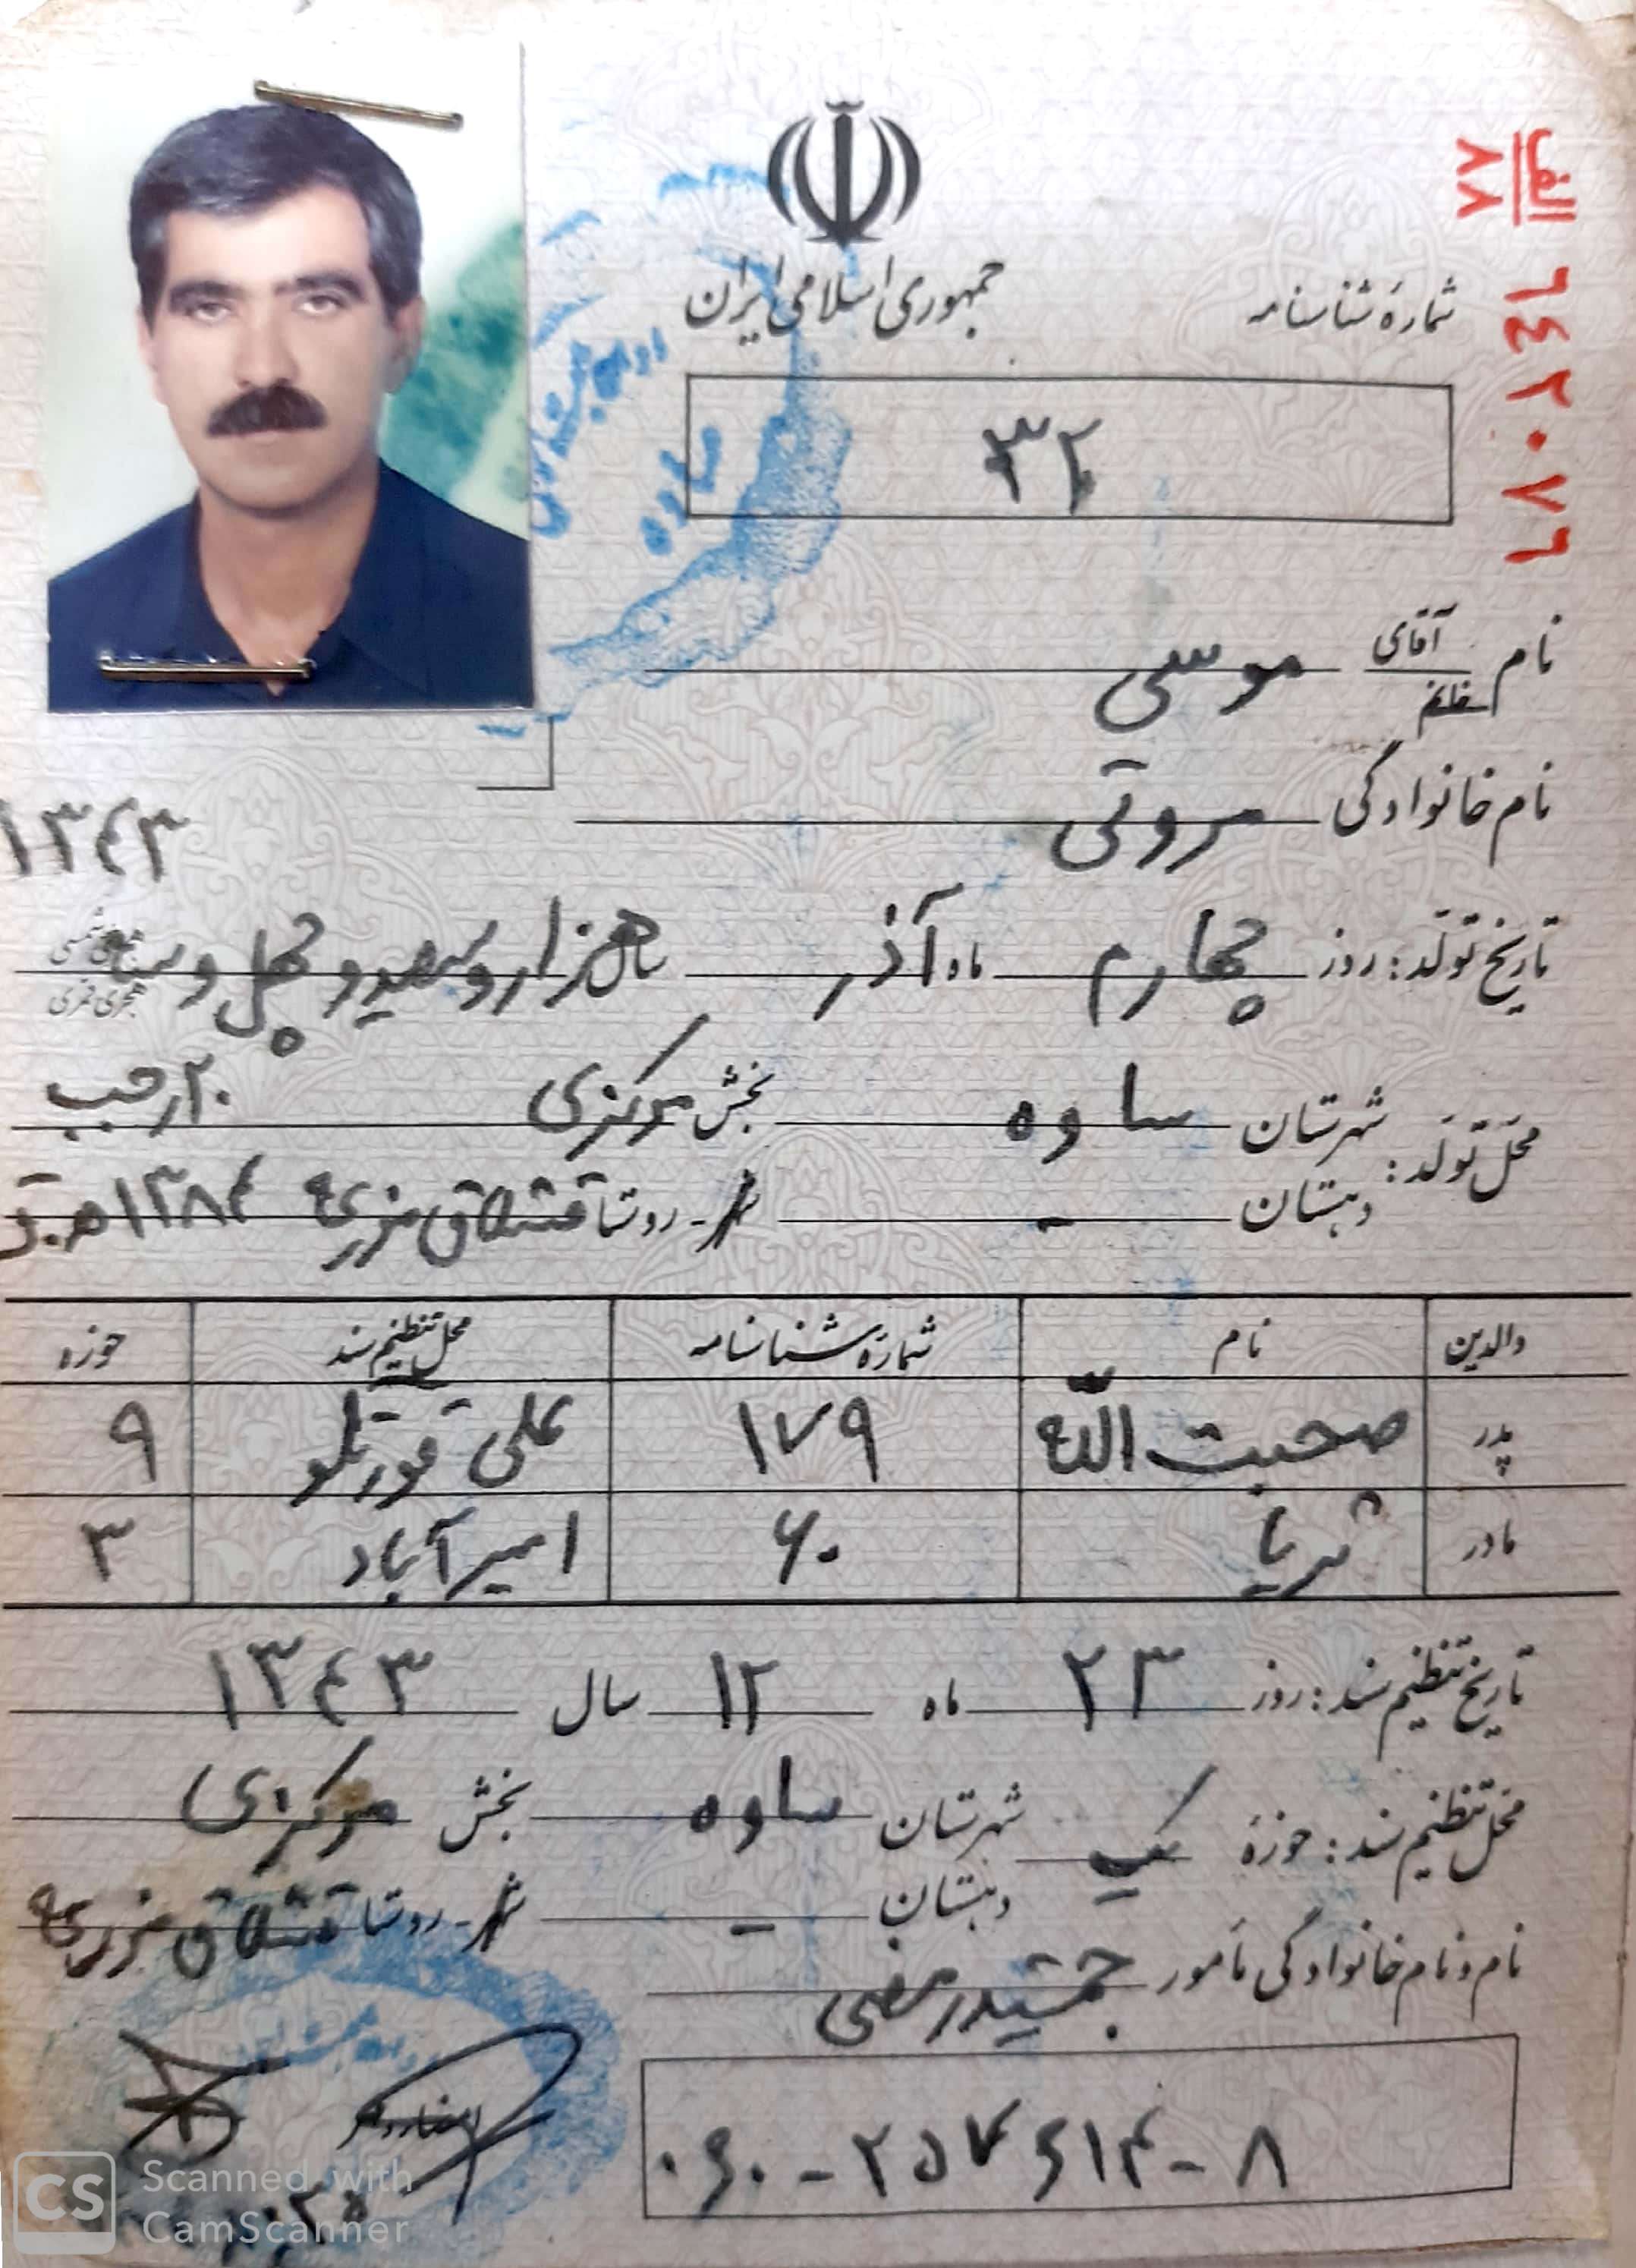 جمهوری اسلامی ایران
الف
۸۸
٦٤٢٠٧٦
شمارهٔ شناسنامه
۳۲
نام آقای / خانم موسی
نام خانوادگی مروتی
۱۳۴۳
تاریخ تولد: روز چهارم ماه آذر سال هزار و سیصد و چهل و سه هجری شمسی
هجری قمری
محل تولد: شهرستان ساوه بخش مرکزی ۲۰ رجب
دهستان - شهر - روستا قشلاق مزرعه ۱۳۸۴ ه.ق
والدین نام شمارهٔ شناسنامه محل تنظیم سند حوزه
پدر صحبت الله ۱۷۹ علی قورتلو ۹
مادر ثریا ۶۰ امیرآباد ۳
تاریخ تنظیم سند: روز ۲۳ ماه ۱۲ سال ۱۳۴۳
محل تنظیم سند: حوزهٔ یک شهرستان ساوه بخش مرکزی
دهستان - شهر - روستا قشلاق مزرعه
نام و نام خانوادگی مأمور جمشید رمضی
۰۶۰-۲۵۷۶۱۴-۸
CS Scanned with
CamScanner